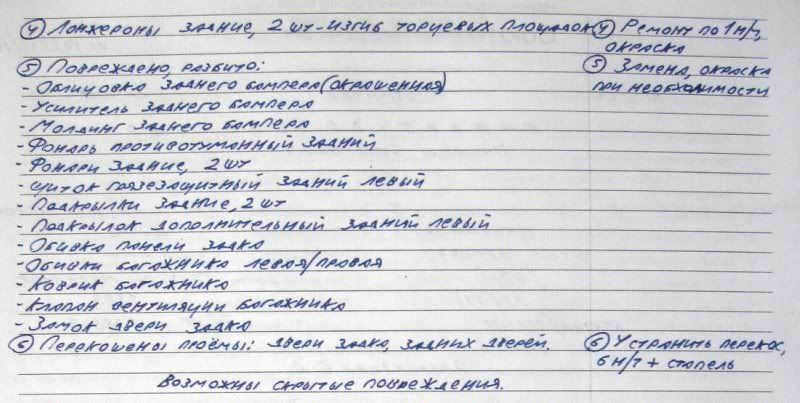 ④ Лонжероны задние, 2 шт-изгиб торцевых площадок ④ Ремонт по 1 н/ч,
окраска
⑤ Повреждено, разбито: ⑤ Замена, окраска
- Облицовка заднего бампера (окрашенная) при необходимости
- Усилитель заднего бампера
- Молдинг заднего бампера
- Фонарь противотуманный задний
- Фонари задние, 2 шт
- Щиток грязезащитный задний левый
- Подкрылки задние, 2 шт
- Подкрылок дополнительный задний левый
- Обивка панели задка
- Обивки багажника левая/правая
- Коврик багажника
- Клапан вентиляции багажника
- Замок двери задка
⑥ Перекошены проёмы: двери задка, задних дверей. ⑥ Устранить перекос,
6 н/ч + стапель
Возможны скрытые повреждения.